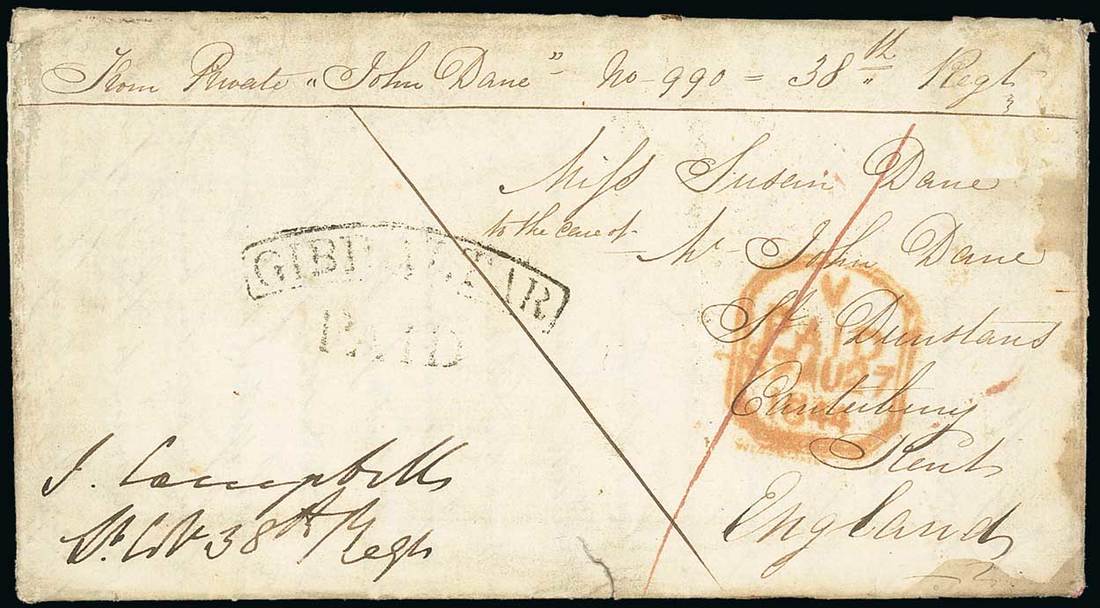 From Private "John Dane" No 990 = 38th Regt
Miss Susan Dane
to the care of Mr John Dane
St Dunstans
Canterbury
Kent
England
GIBRALTAR
PAID
V
PAID
AU27
1844
J. Campbell
Lt Col 38th Regt